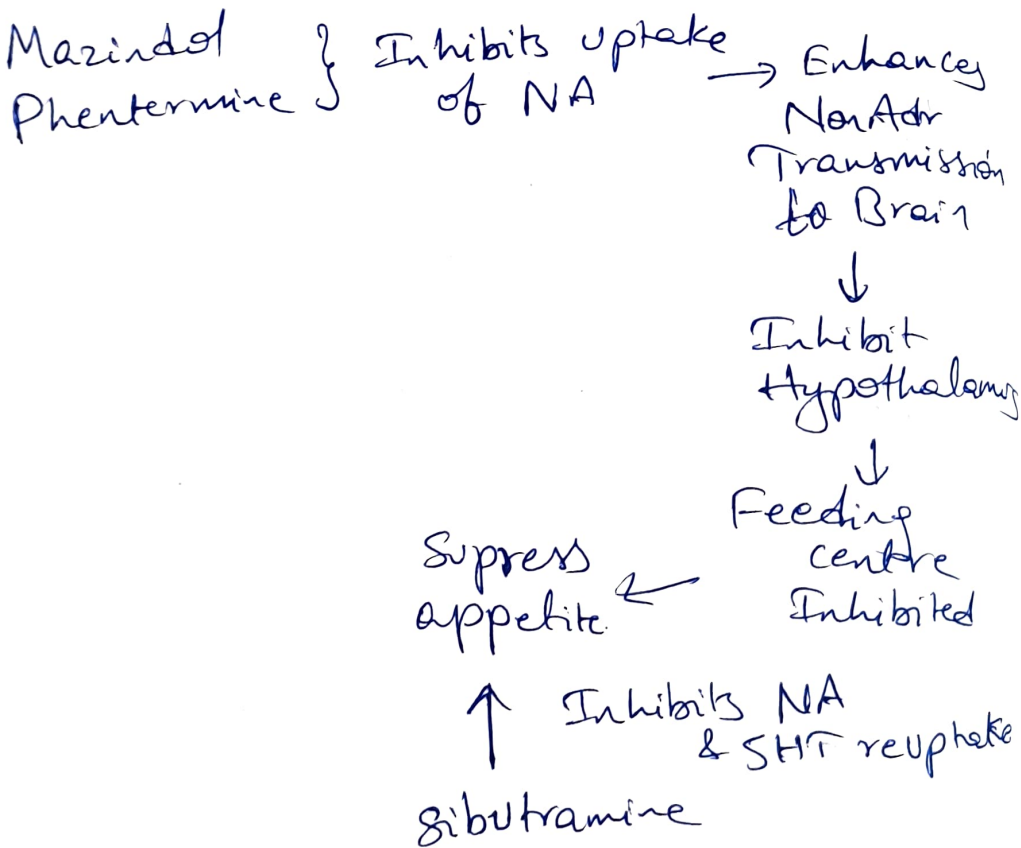 Mazindol
Phentermine } Inhibits uptake
of NA
→ Enhances
NorAdr
Transmission
to Brain
↓
Inhibit
Hypothalamus
↓
Feeding
centre
Inhibited
←
Supress
appetite
↑ Inhibits NA
& 5HT reuptake
Sibutramine